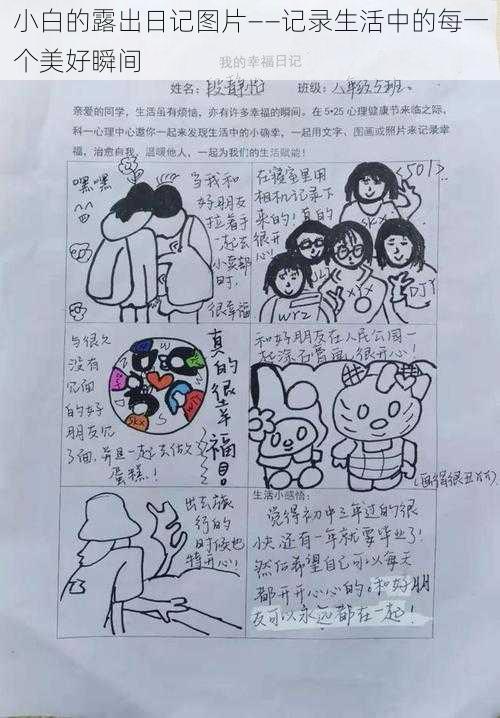 小白的露出日记图片——记录生活中的每一
个美好瞬间
我的幸福日记
姓名：段静怡 班级：八年级五班。
亲爱的同学，生活虽有烦恼，亦有许多幸福的瞬间。在 5•25 心理健康节来临之际，
科一心理中心邀你一起来发现生活中的小确幸，一起用文字、图画或照片来记录幸
福，治愈自我，温暖他人，一起为我们的生活赋能！
嘿嘿
当我和
好朋友
拉着手
一起去
小卖部
时，
很幸福
在寝室里用
相机记录下
来的，真的
很开
心
<501>
SKX
WYZ
XYX
DJY
与很久
没有
见面
的好
朋友见
了面，并且一起去做了
蛋糕！
SKX
真的很幸福
和好朋友在人民公园一
起涂石膏画，很开心！
(画得很丑)
出去旅
行的
时候也
特开心！
生活小感悟：
觉得初中三年过的很
快，还有一年就要毕业了！
然后希望自己可以每天
都开开心心的。和好朋
友可以永远都在一起！